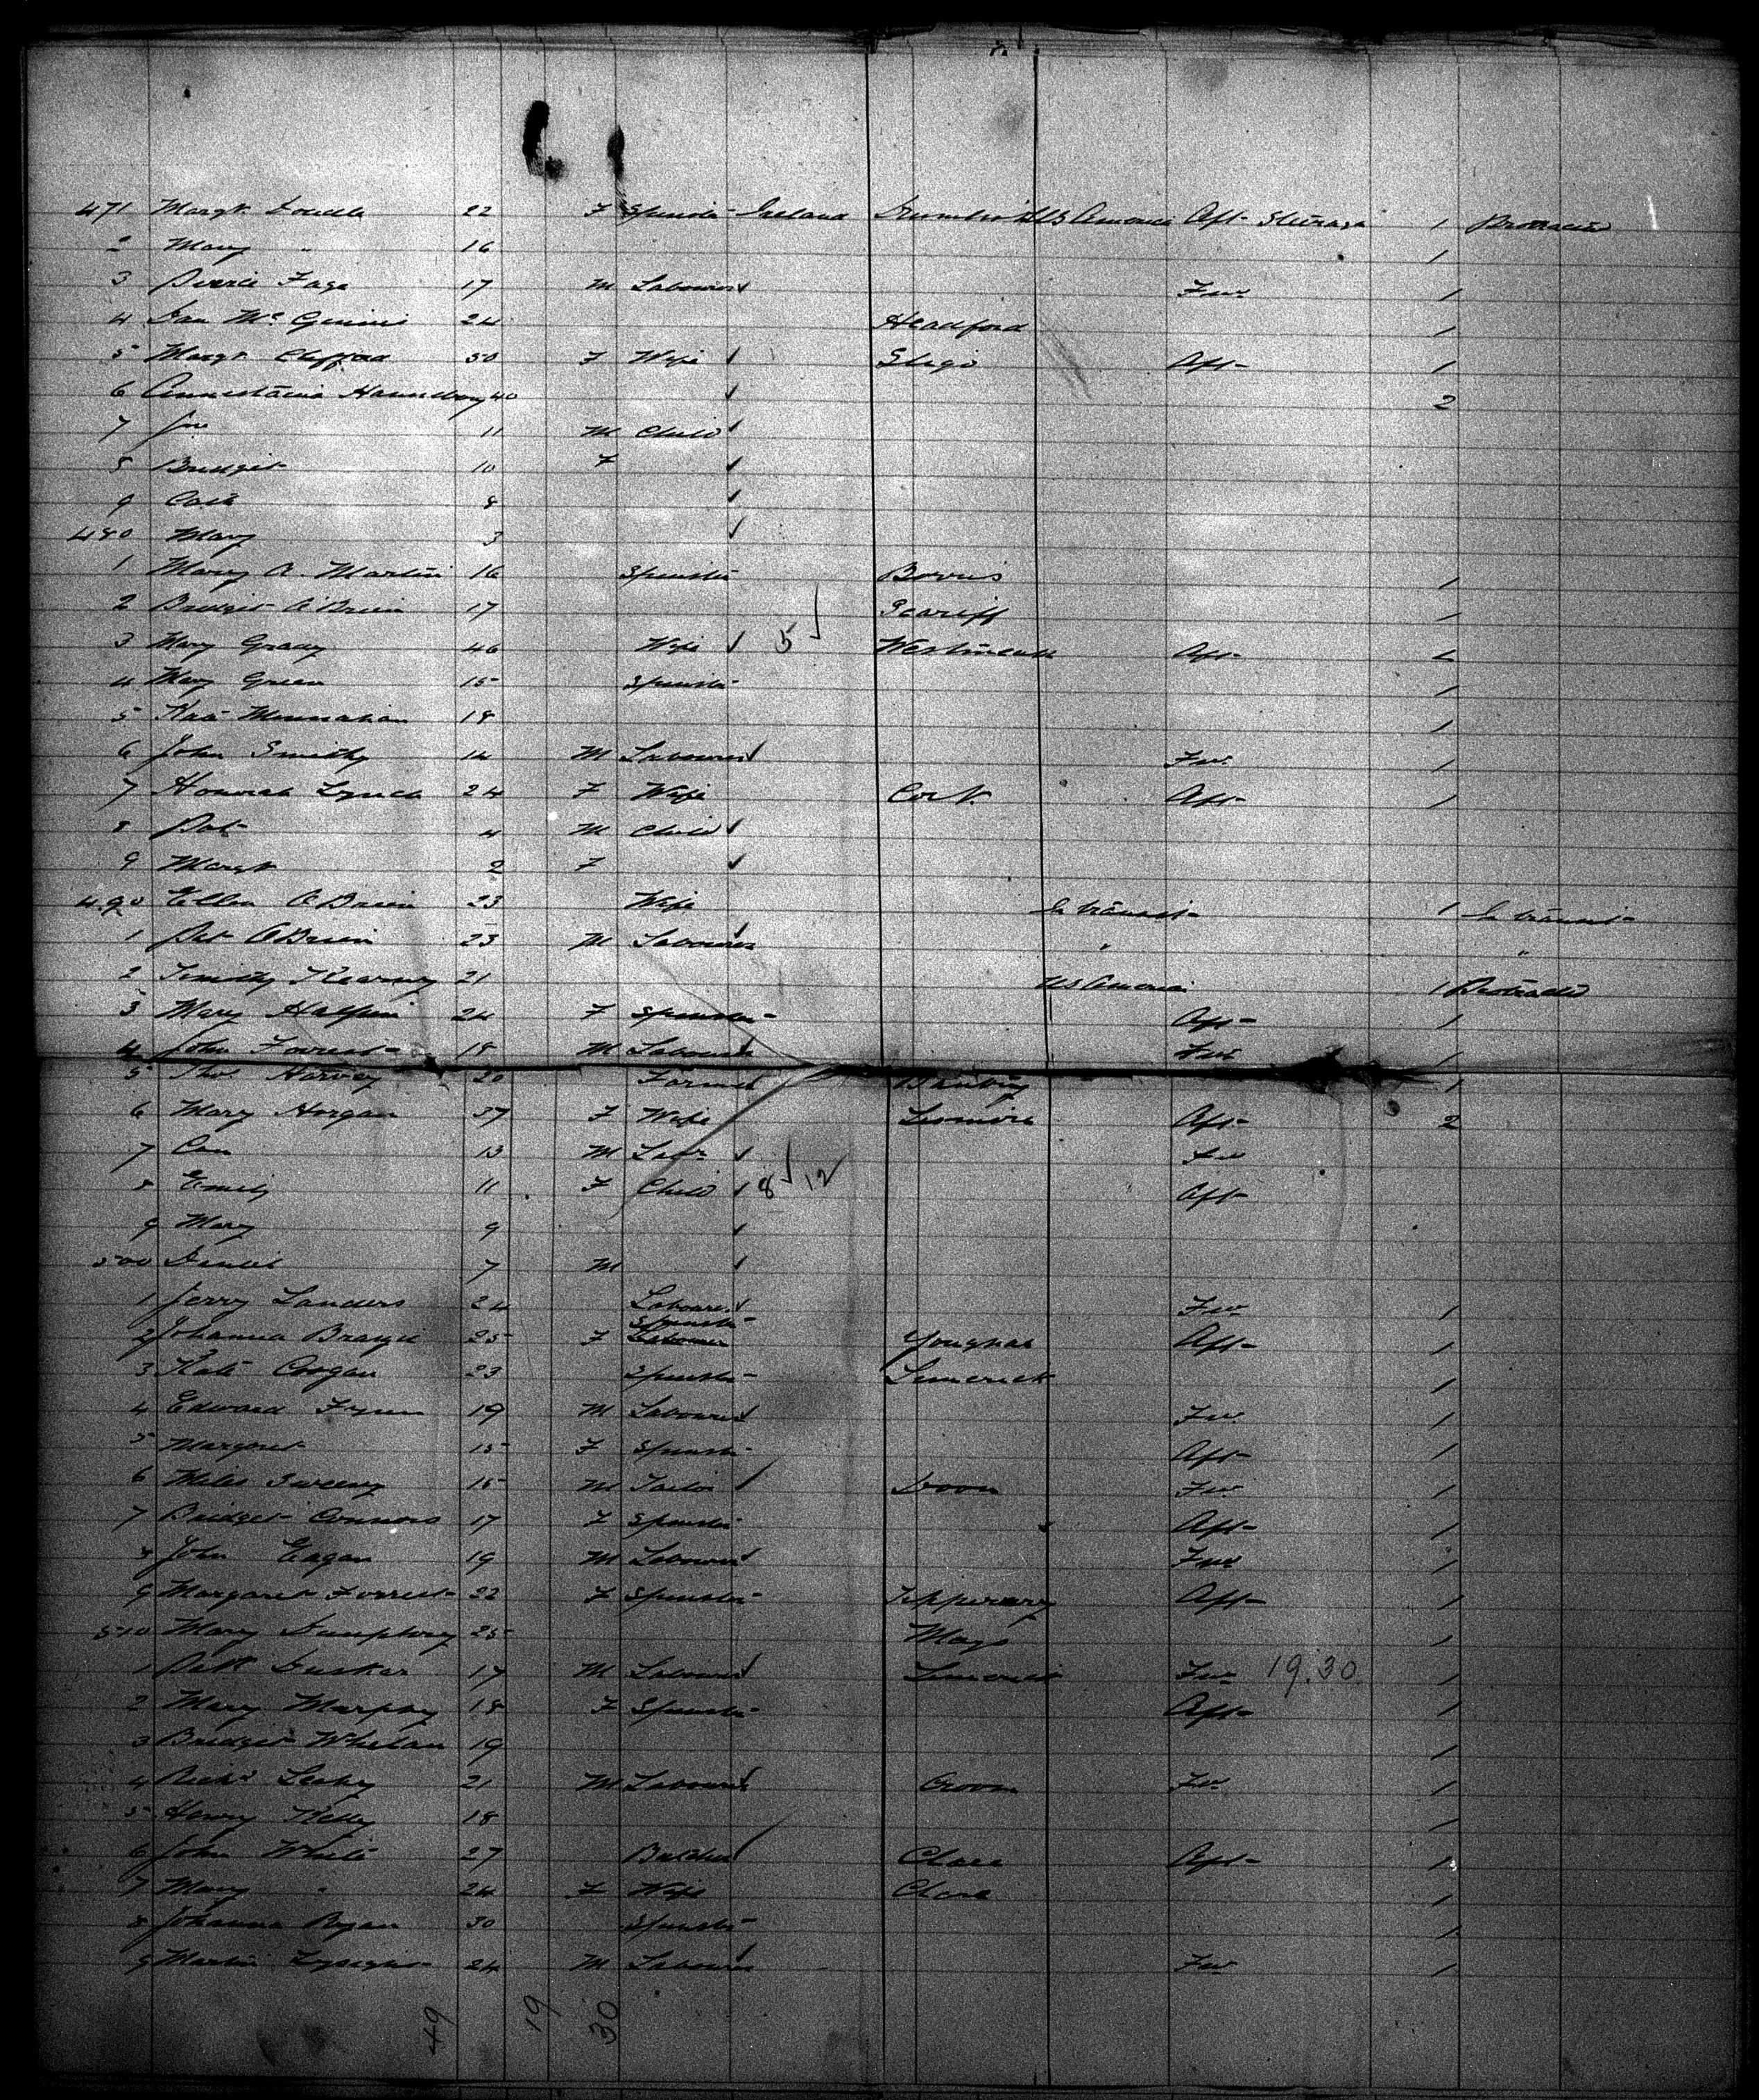 471 Margt. 22 F Spinster Ireland US America Aft Steerage 1 Protracted
2 Mary " 16 1
3 Pierce Fage 17 M Labourer Fwd 1
4 Dan Mc Ginnis 24 Headford 1
5 Margt. Clifford 50 F Wife Sligo Aft 1
6 40 2
7 Jno 11 M Child
8 Bridget 10 F
9 Cath 8
480 Mary 3
1 Mary A. Martin 16 Spinster Borris 1
2 Bridget O'Brien 17 Scariff 1
3 Mary Grady 46 Wife 5 Westmeath Aft
4 Mary Green 15 Spinster 1
5 Kate 18 1
6 John Smith 14 M Labourer Fwd 1
7 Honorah Lynch 24 F Wife Cork Aft 1
8 Pat 4 M Child
9 Margt 2 F
490 Ellen O'Brien 23 Wife In transit 1 In transit
1 Pat O'Brien 23 M Labourer " "
2 Timothy Kearney 21 US America 1 Protracted
3 Mary Halpin 24 F Spinster Aft 1
4 John Forrest 18 M Labourer Fwd 1
5 Tho. Harvey 20 Farmer 1
6 Mary Horgan 37 F Wife Lismore Aft 2
7 Con 13 M Labr Fwd
8 Emily 11 F Child 8 12 Aft
9 Mary 9
500 Daniel 7 M
1 Jerry Landers 24 Labourer Fwd 1
Spinster
2 Johanna 25 F Labourer Youghal Aft 1
3 Kate Coogan 23 Spinster Limerick 1
4 Edward 19 M Labourer Fwd 1
5 Margaret 15 F Spinster Aft 1
6 Miles Sweeny 15 M Tailor Doon Fwd 1
7 Bridget Connors 17 F Spinster Aft 1
8 John Eagan 19 M Labourer Fwd 1
9 Margaret Forrest 22 F Spinster Tipperary Aft 1
510 Mary Dumphry 25 Mayo 1
1 Patk 17 M Labourer Limerick Fwd 19.30 1
2 Mary Murphy 18 F Spinster Aft 1
3 Bridget Whelan 19 1
4 Richd Leahy 21 M Labourer Croom Fwd 1
5 Henry Kelly 18 1
6 John White 27 Butcher Clare Aft 1
7 Mary " 24 F Wife Clare 1
8 Johanna Ryan 30 Spinster 1
9 Martin Lysight 24 M Labourer Fwd 1
49 19 30